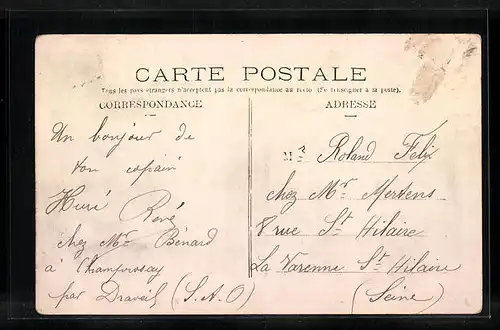 CARTE POSTALE
Tous les pays étrangers n'acceptent pas la correspondance au recto (Se renseigner à la poste).
CORRESPONDANCE
Un bonjour de
ton copain
Huré René
chez Mr Bénard
à Champrosay
par Draveil (S.A.O)
ADRESSE
Mr Roland Felix
chez Mr Mertens
8 rue St Hilaire
La Varenne St Hilaire
(Seine)